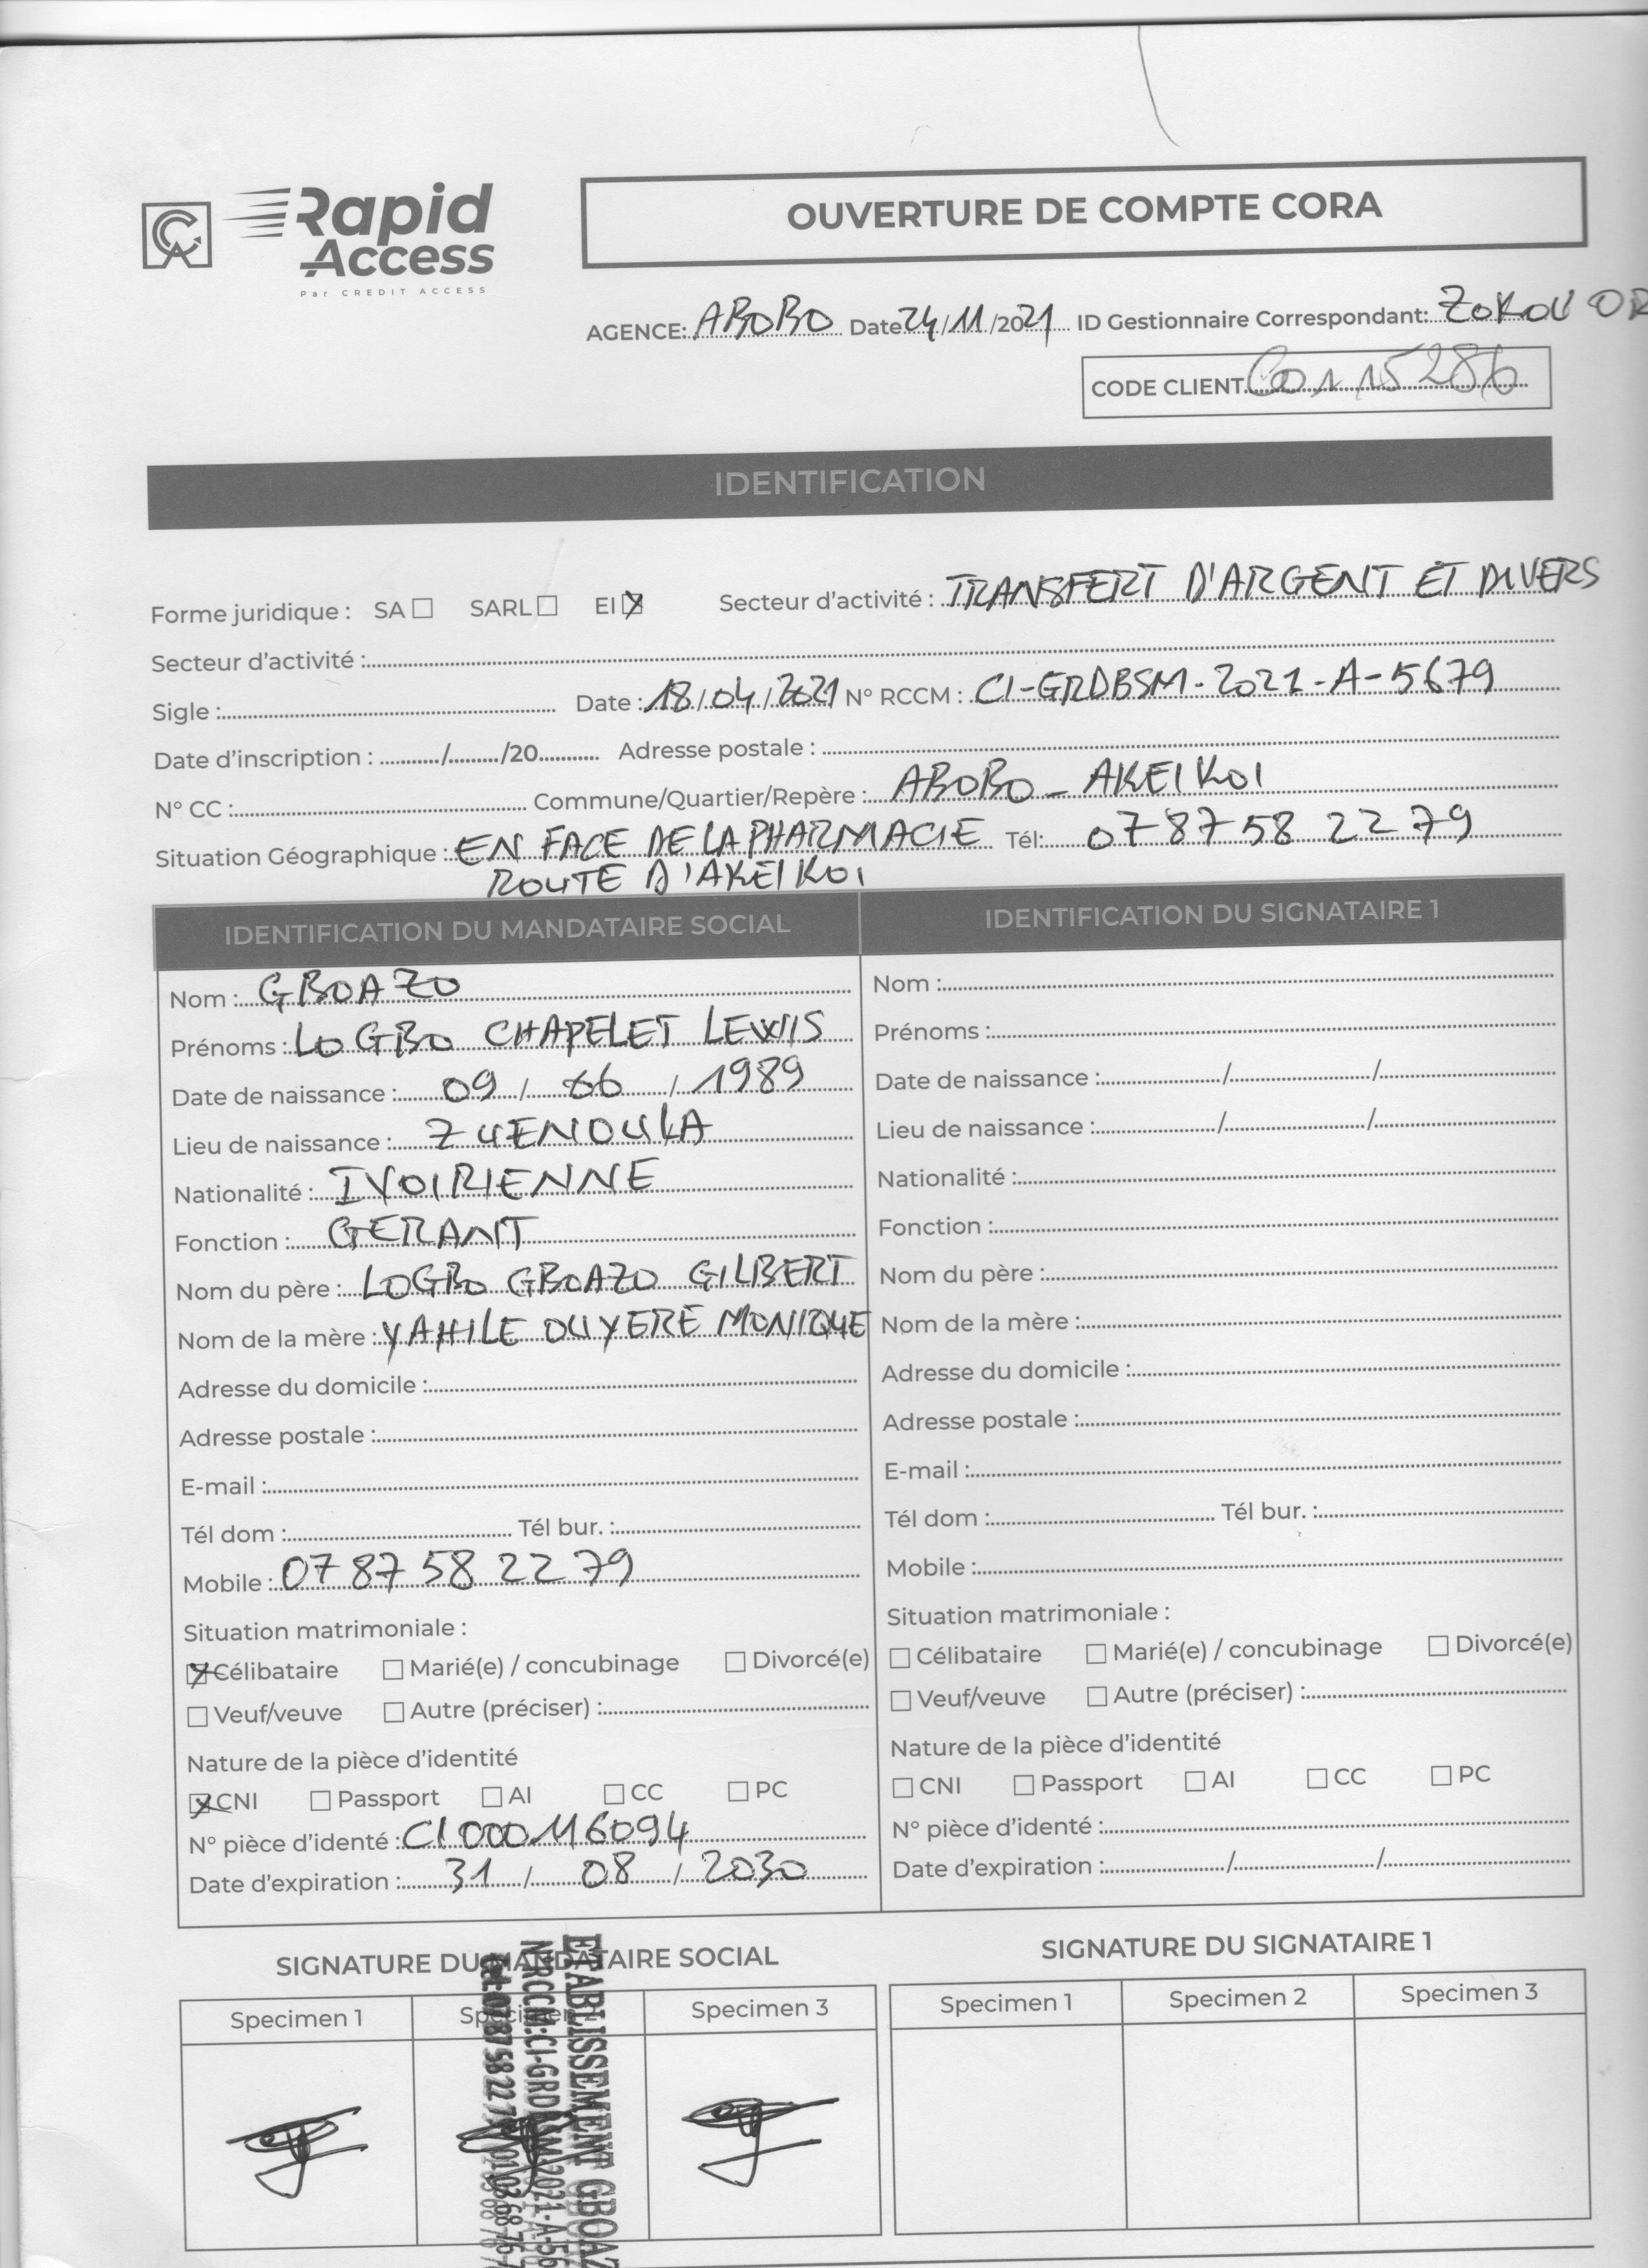 CA Rapid Access
Par CREDIT ACCESS
OUVERTURE DE COMPTE CORA
AGENCE: ABOBO Date 24/11/2021 ID Gestionnaire Correspondant: ZOKOU OR
CODE CLIENT C0115286
IDENTIFICATION
Forme juridique : SA ☐ SARL ☐ EI ☒ Secteur d'activité : TRANSFERT D'ARGENT ET DIVERS
Secteur d'activité :
Sigle : Date : 18/04/2021 N° RCCM : CI-GRDBSM-2021-A-5679
Date d'inscription : / /20 Adresse postale :
N° CC : Commune/Quartier/Repère : ABOBO - AKEIKOI
Situation Géographique : EN FACE DE LA PHARMACIE Tél: 07 87 58 22 79
ROUTE D'AKEIKOI
IDENTIFICATION DU MANDATAIRE SOCIAL
Nom : GBOAZO
Prénoms : LOGBO CHAPELET LEWIS
Date de naissance : 09 / 06 / 1989
Lieu de naissance : ZUENOULA
Nationalité : IVOIRIENNE
Fonction : GERANT
Nom du père : LOGBO GBOAZO GILBERT
Nom de la mère : YAHILE OUYERE MONIQUE
Adresse du domicile :
Adresse postale :
E-mail :
Tél dom : Tél bur. :
Mobile : 07 87 58 22 79
Situation matrimoniale :
☒ Célibataire ☐ Marié(e) / concubinage ☐ Divorcé(e)
☐ Veuf/veuve ☐ Autre (préciser) :
Nature de la pièce d'identité
☒ CNI ☐ Passport ☐ AI ☐ CC ☐ PC
N° pièce d'identé : CI000116094
Date d'expiration : 31 / 08 / 2030
IDENTIFICATION DU SIGNATAIRE 1
Nom :
Prénoms :
Date de naissance : / /
Lieu de naissance : / /
Nationalité :
Fonction :
Nom du père :
Nom de la mère :
Adresse du domicile :
Adresse postale :
E-mail :
Tél dom : Tél bur. :
Mobile :
Situation matrimoniale :
☐ Célibataire ☐ Marié(e) / concubinage ☐ Divorcé(e)
☐ Veuf/veuve ☐ Autre (préciser) :
Nature de la pièce d'identité
☐ CNI ☐ Passport ☐ AI ☐ CC ☐ PC
N° pièce d'identé :
Date d'expiration : / /
SIGNATURE DU MANDATAIRE SOCIAL
Specimen 1 Specimen 2 Specimen 3
ETABLISSEMENT GBOAZ
SIGNATURE DU SIGNATAIRE 1
Specimen 1 Specimen 2 Specimen 3